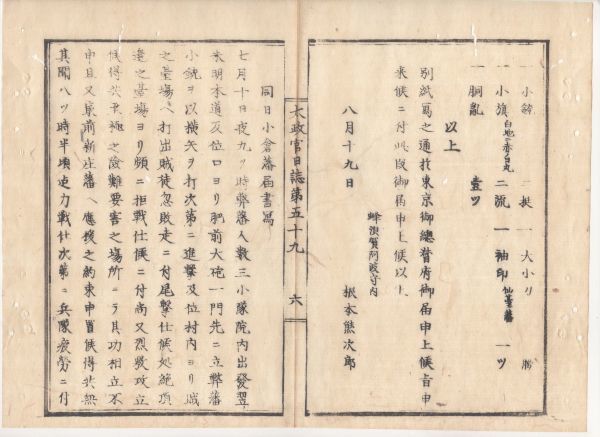 一 小銃 二挺 一 大小刀
一 小旗 白地ニ赤日丸 二流 一 袖印 仙臺藩 一ツ
一 胴亂 壹ツ
以上
別紙寫之通於東京御總督府御届申上候旨申
来候ニ付此段御届申上候以上
八月十九日
蜂須賀阿波守内
根本熊次郎
太政官日誌第五十九 六
同日小倉藩届書寫
七月十日夜九ツ時弊藩人数三小隊院内出發翌
朱明本道及位口ヨリ肥前大砲一門先ニ立弊藩
小銃ヲ以横矢ヲ打次第ニ進撃及位村内ヨリ
之臺場ヘ打出賊徒忽敗走ニ付尾撃仕候処絶頂
之臺場ヨリ頻ニ拒戦仕候ニ付尚又烈敷攻立
候得共至極之險難要害之場所ニテ其功相立不
申且又最前新庄藩ヘ應援之約束申置候得共無
其聞八ツ時半頃迄力戦仕次第ニ兵隊疲労ニ付